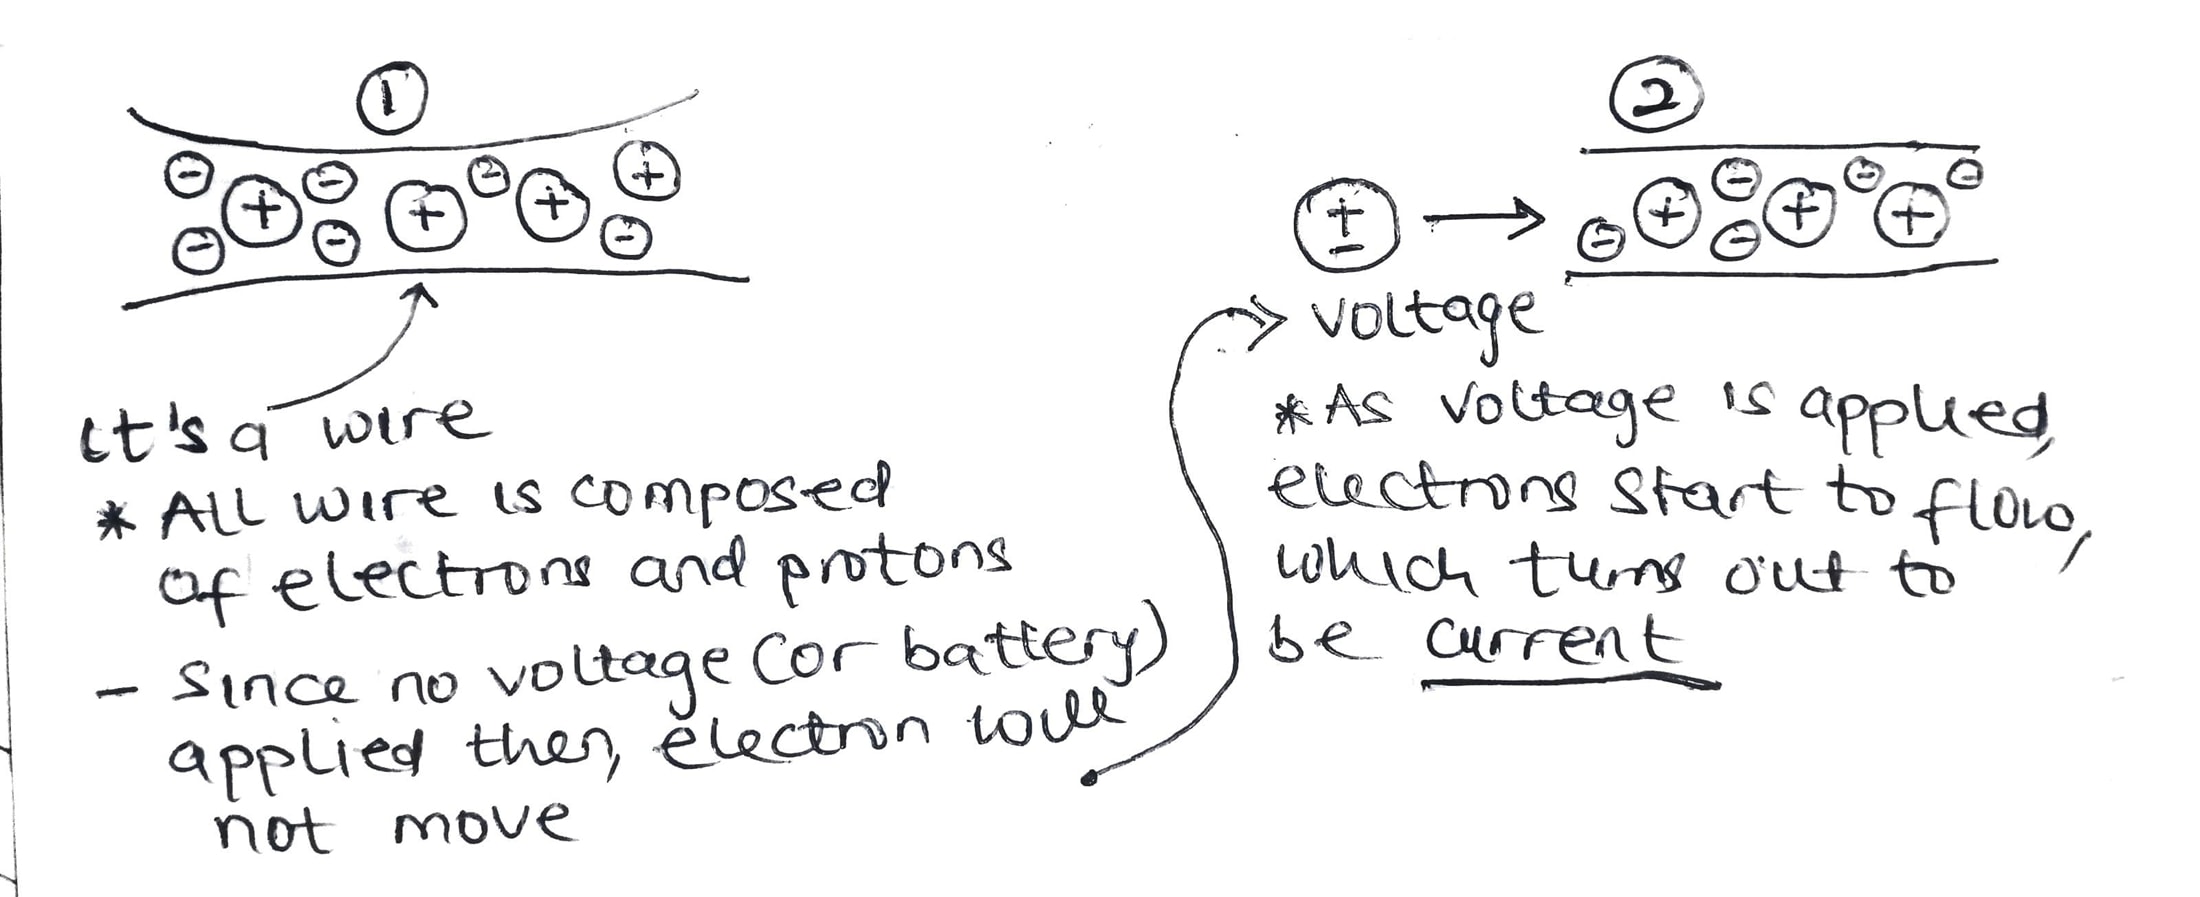 ①
It's a wire
* All wire is composed
of electrons and protons
- Since no voltage (or battery)
applied then, electron will
not move
②
voltage
* As voltage is applied,
electrons start to flow,
which turns out to
be current